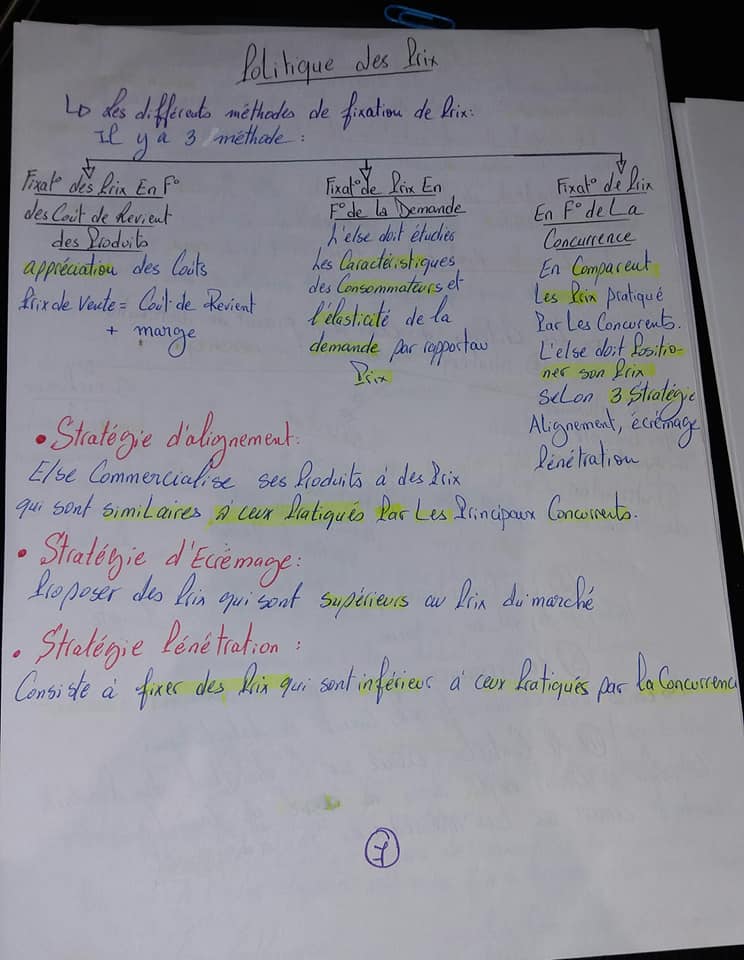 Politique des Prix
Les différents méthodes de fixation de Prix:
Il y a 3 méthode:
Fixat° des Prix En F°
des Coût de Revient
des Produits
appréciation des Coûts
Prix de Vente = Coût de Revient
+ marge
Fixat° de Prix En
F° de la Demande
L'e/se doit étudiés
Les Caractéristiques
des Consommateurs et
l'élasticité de la
demande par rapport au
Prix
Fixat° de Prix
En F° de La
Concurrence
En Comparent
Les Prix pratiqué
Par Les Concurents.
L'e/se doit Positio-
ner son Prix
Selon 3 Stratégie
Alignement, écrémage
Pénétration
• Stratégie d'alignement:
E/se Commercialise ses Produits à des Prix
qui sont similaires à ceux Pratiqués Par Les Principaux Concurrents.
• Stratégie d'Ecrémage:
Proposer des Prix qui sont supérieurs au Prix du marché
• Stratégie Pénétration:
Consiste à fixer des Prix qui sont inférieur à ceux Pratiqués par la Concurrenc